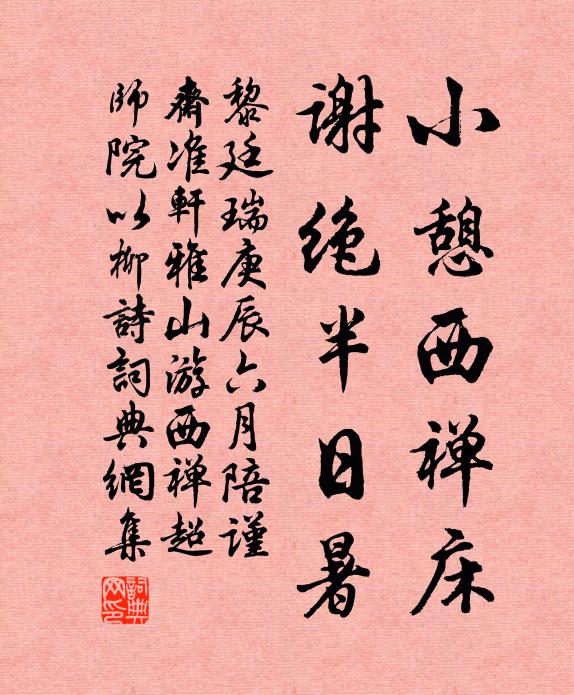 小憩西禅床
謝绝半日暑
黎廷瑞庚辰六月陪謹
齋准軒雅山游西禅超
師院以柳詩詞典網集
詞典
网印